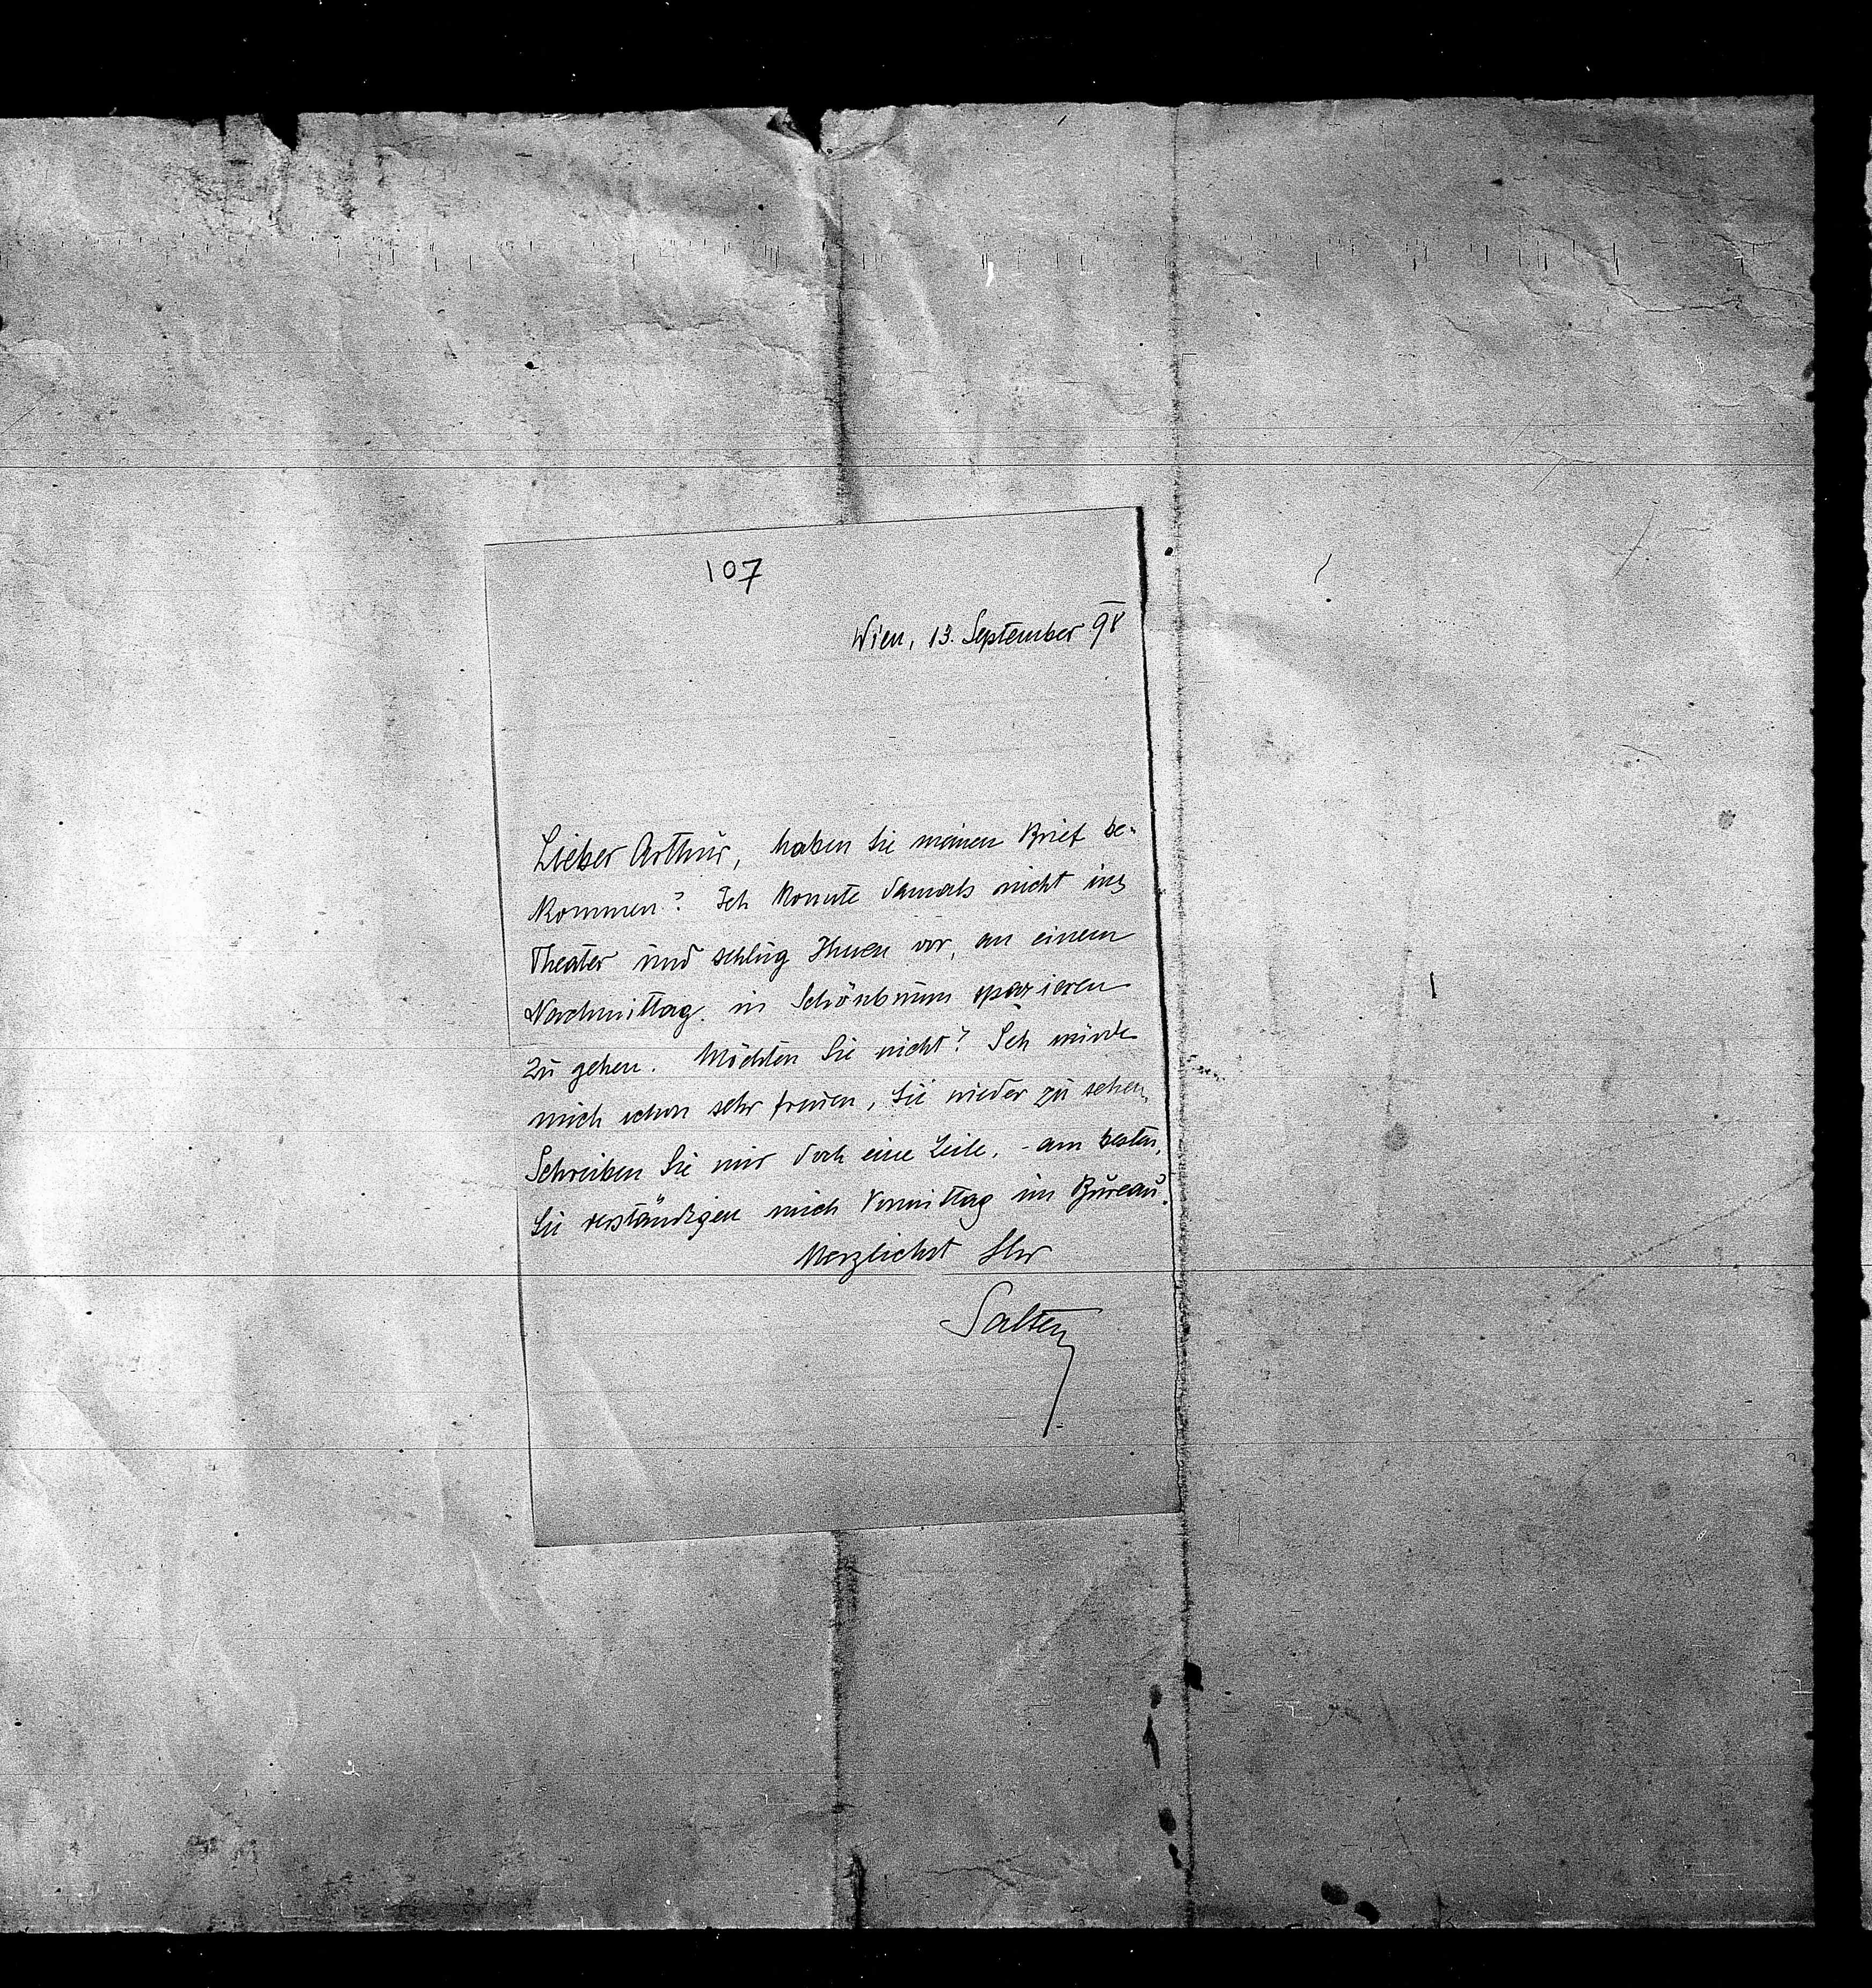 107
Wien, 13. September 98
Lieber Arthur, haben Sie meinen Brief be-
kommen? Ich konnte damals nicht ins
Theater und schlug Ihnen vor, an einem
Nachmittag in Schönbrunn spazieren
zu gehen. Möchten Sie nicht? Ich würde
mich schon sehr freuen, Sie wieder zu sehen.
Schreiben Sie mir doch eine Zeile, - am besten,
Sie verständigen mich Vormittag im Bureau.
Herzlichst Ihr
Salten